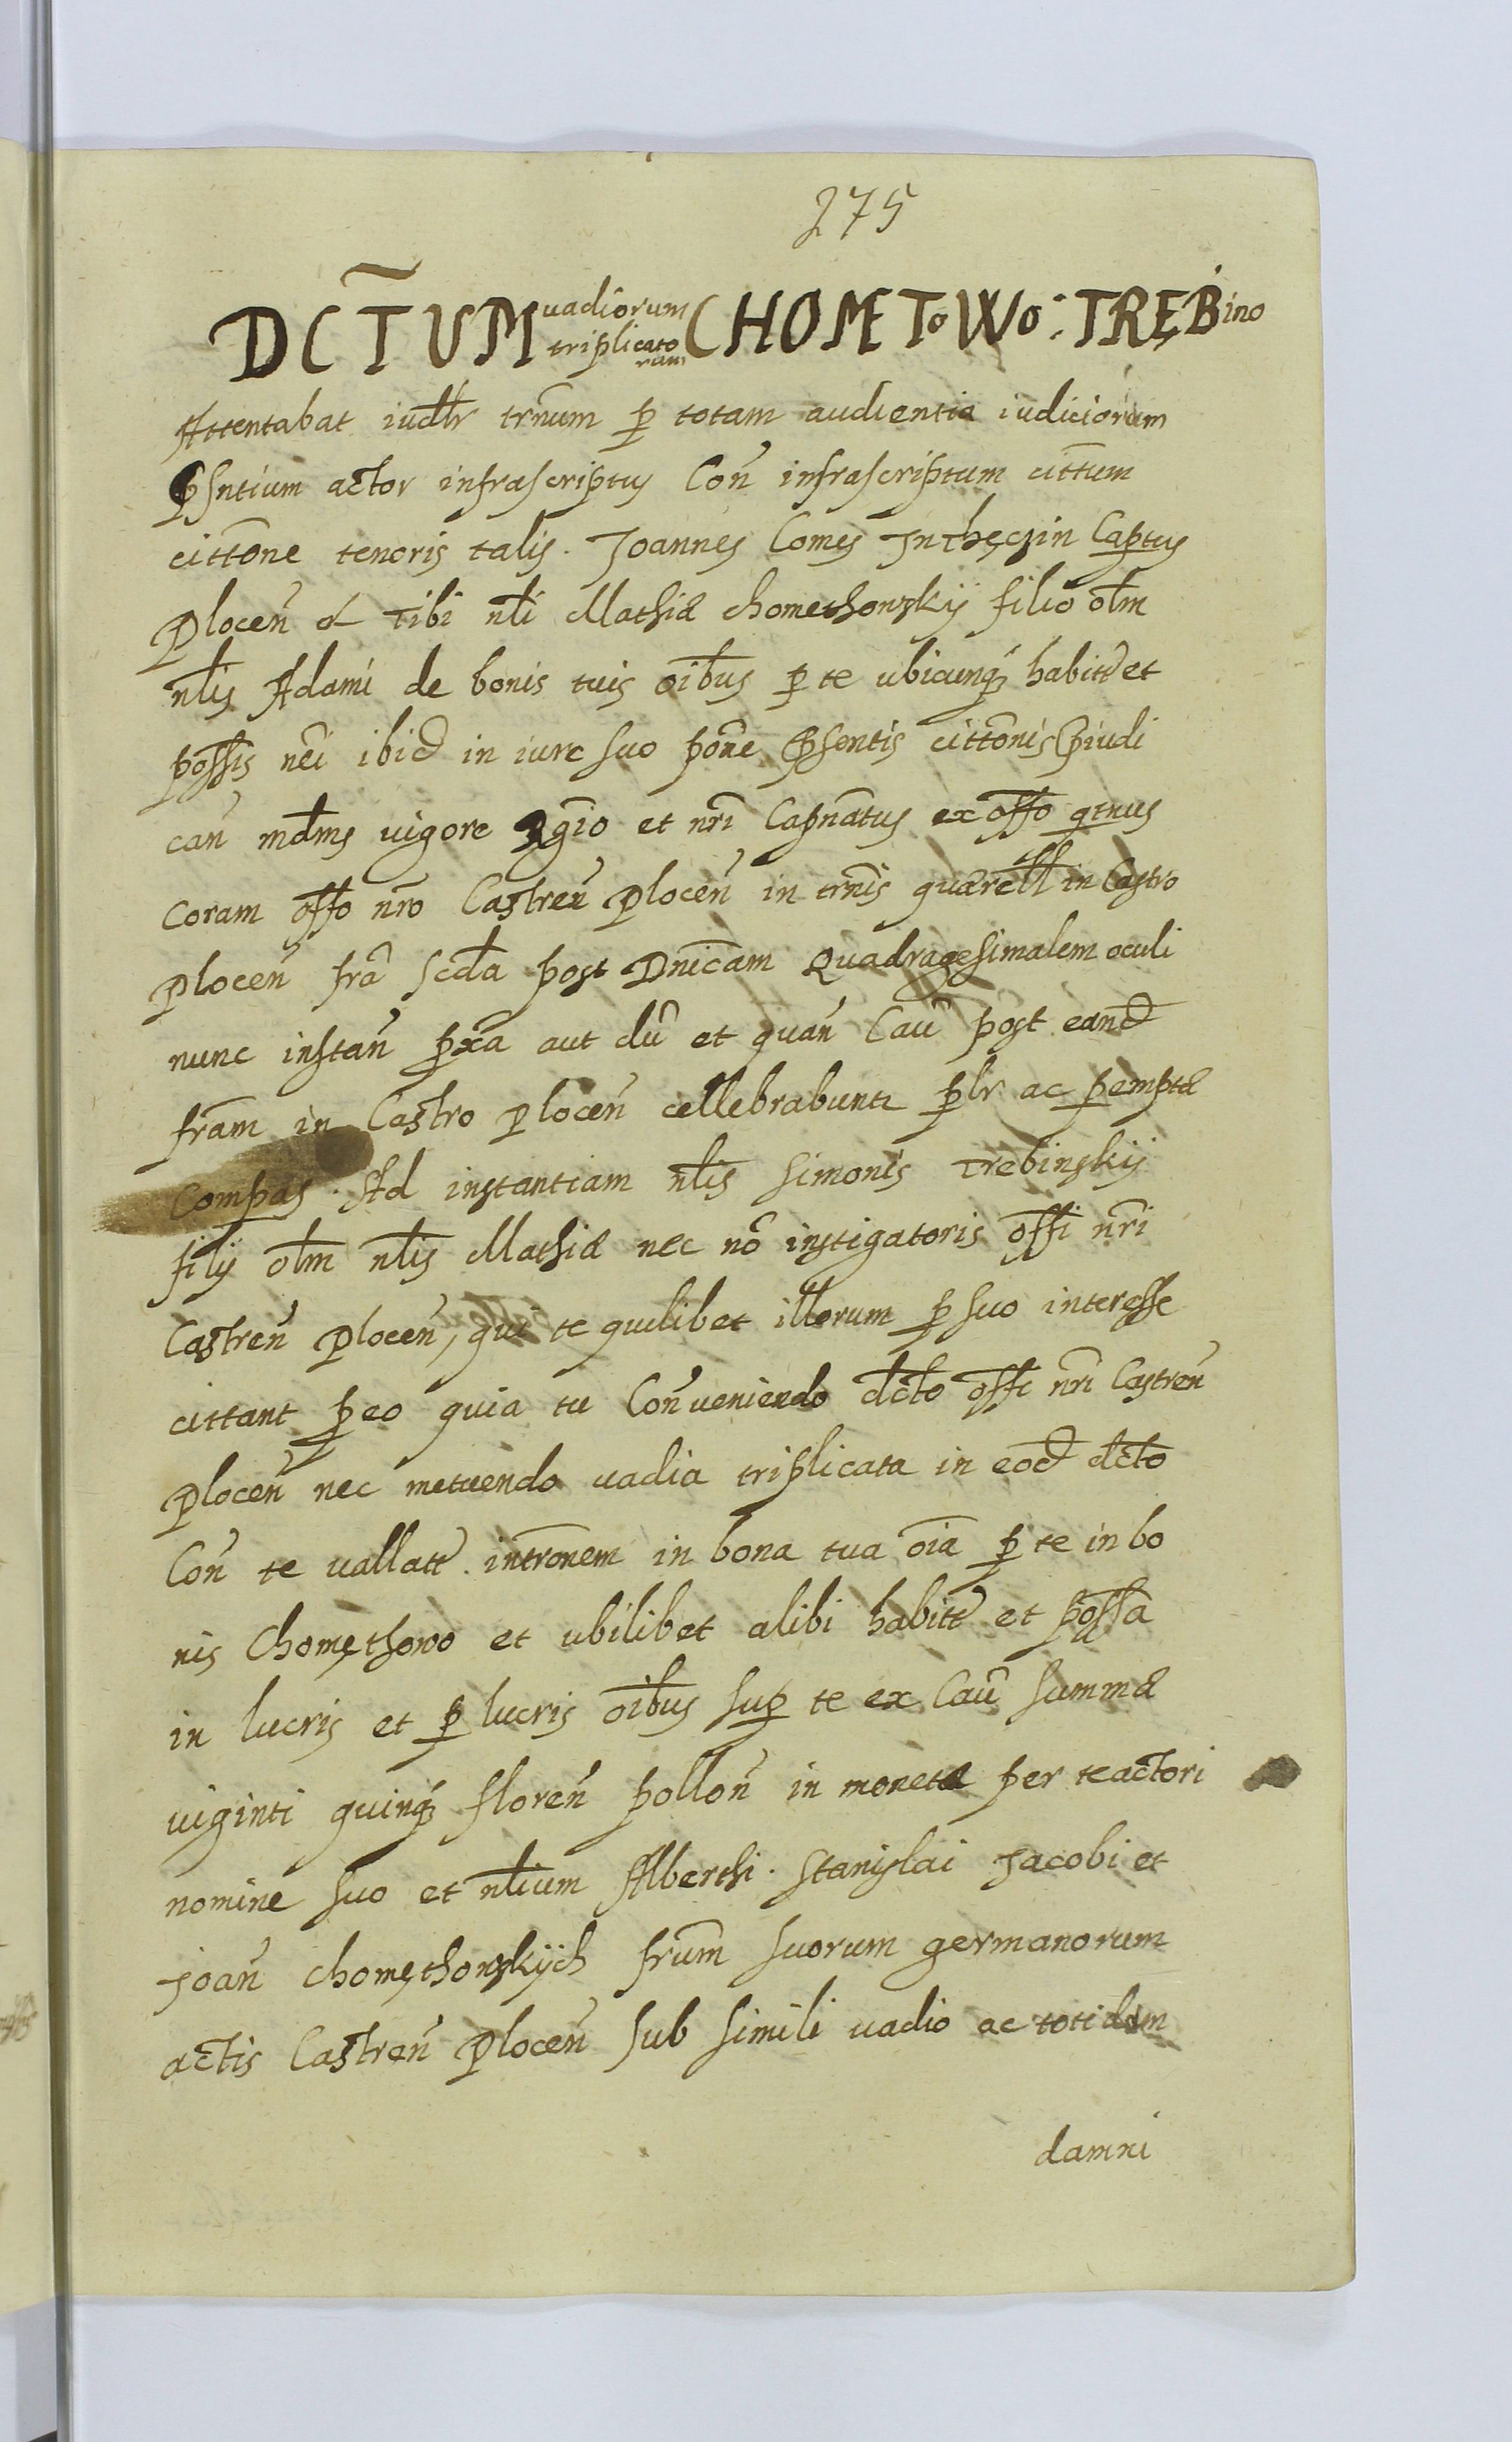 275
DCT̃UM uadiorum triplicatorum CHOMEToWo: TRĘBino
Attentabat iudłr trm̃um p totam audientia iudiciorum
psntium actor infrascriptus Coñ infrascriptum cittum
cittõne tenoris talis. Joannes Comes Jn thęczin Captus
Plocen̄ & Tibi nłi Mathiæ chomethowsky filio ołm
nłis Adami de bonis tuis oĩbus p te ubicunq habitȩ et
possis nẽi ibid in iure suo põne psentis cittõnis piudi
can̄ mdms uigore Rgĩo et nrĩ Capnãtus ex offo qtnus
coram offo nrõ Castren̄ Plocen̄ in trm̃is quærell in Castro
Plocen̄ frã scda post Dnĩcam Quadragesimalem oculi
nunc instan̄ pxa aut dũ et quan̄ Caũ post eand
frãm in Castro Plocen̄ cellebrabunt płr ac pemptæ
Compas. Ad instantiam nłis Simonis Trebinskij
filij ołm nłis Mathiæ nec nõ instigatoris offi nrĩ
Castren̄ Plocen̄, qui te quilibet illorum p suo interesse
cittant p eo quia tu Conueniendo dcto offi nrĩ Castren̄
Plocen̄ nec metuendo uadia triplicata in eod dcto
Con̄ te uallatȩ. intrõnem in bona tua oĩa p te in bo
nis Chomęthowo et ubilibet alibi habitȩ et possa
in lucris et p lucris oĩbus sup te ex Caũ summæ
uiginti quinq floren̄ pollon̄ in moneta per te actori
nomine suo et nłium Alberthi. Stanislai Jacobi et
Joan̄ Chomęthowskijch frũm suorum germanorum
actis Castren̄ Plocen̄ sub simili uadio ac totidem
damni